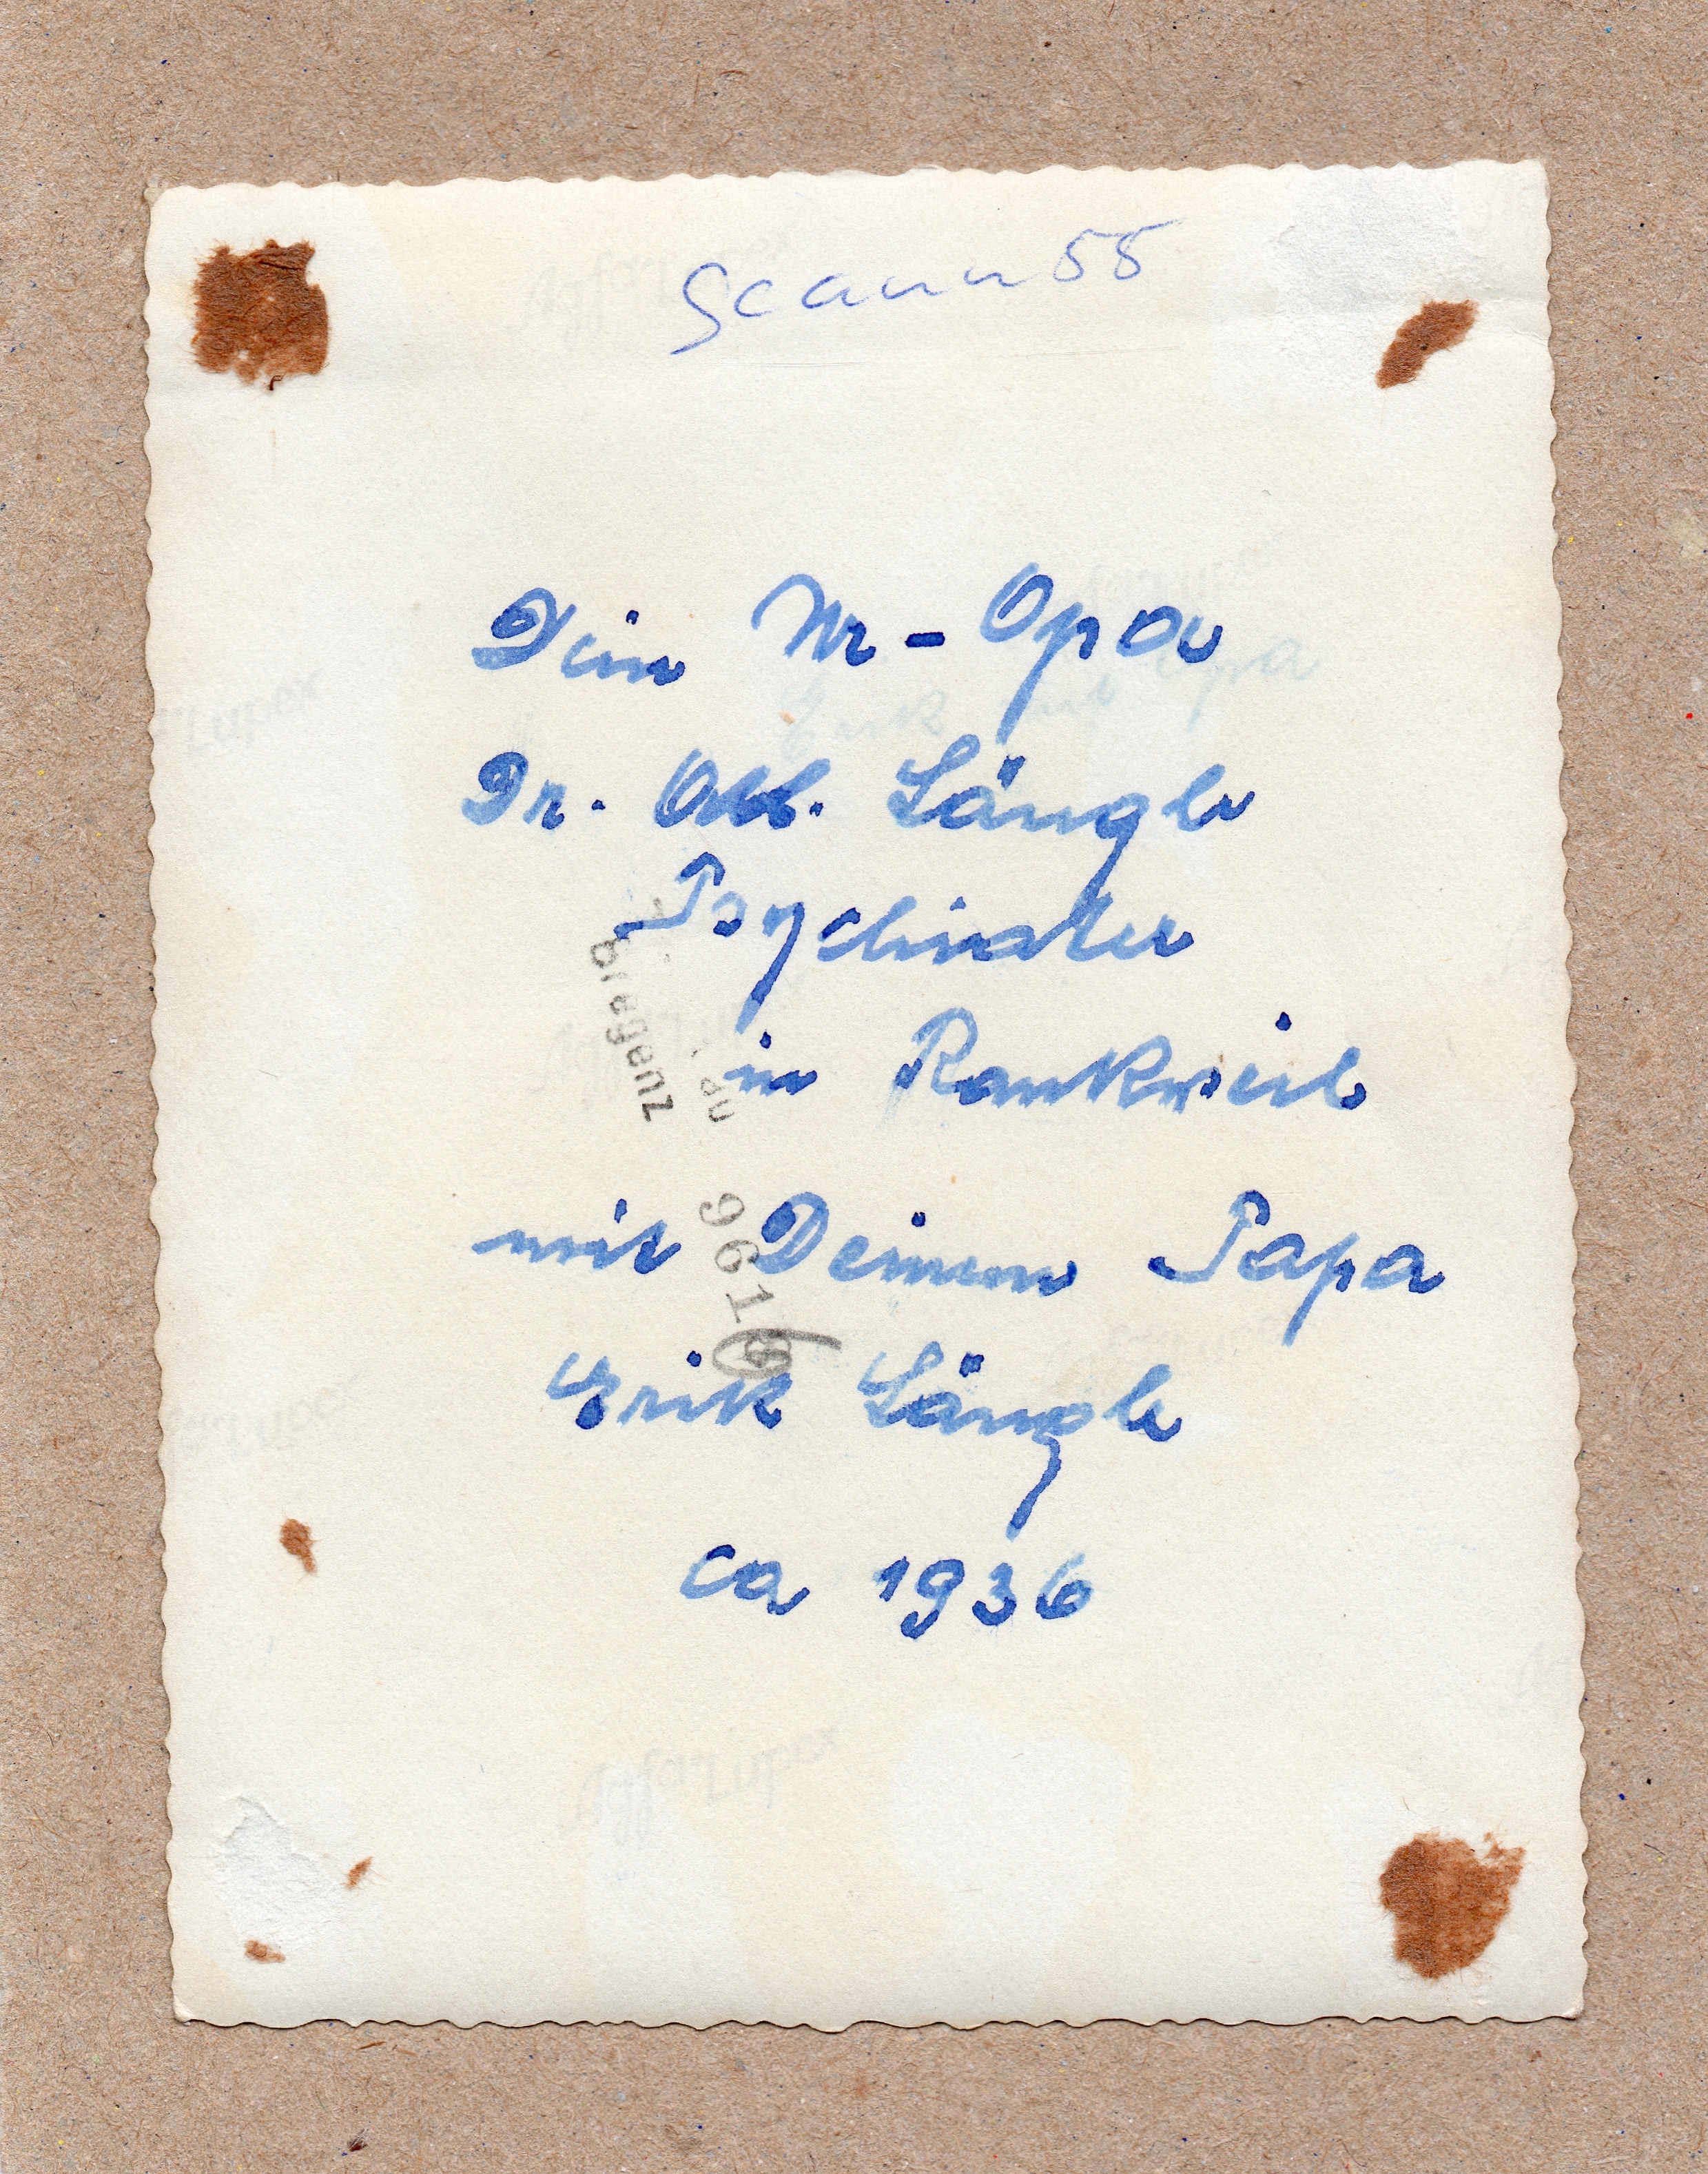 Scann 55
Dein Ur-Opa
Dr. Alb. Längle
Psychiater
in Rankweil
Bregenz
mit Deinem Papa
9619
Erik Längle
ca 1936
Agfa Lupex